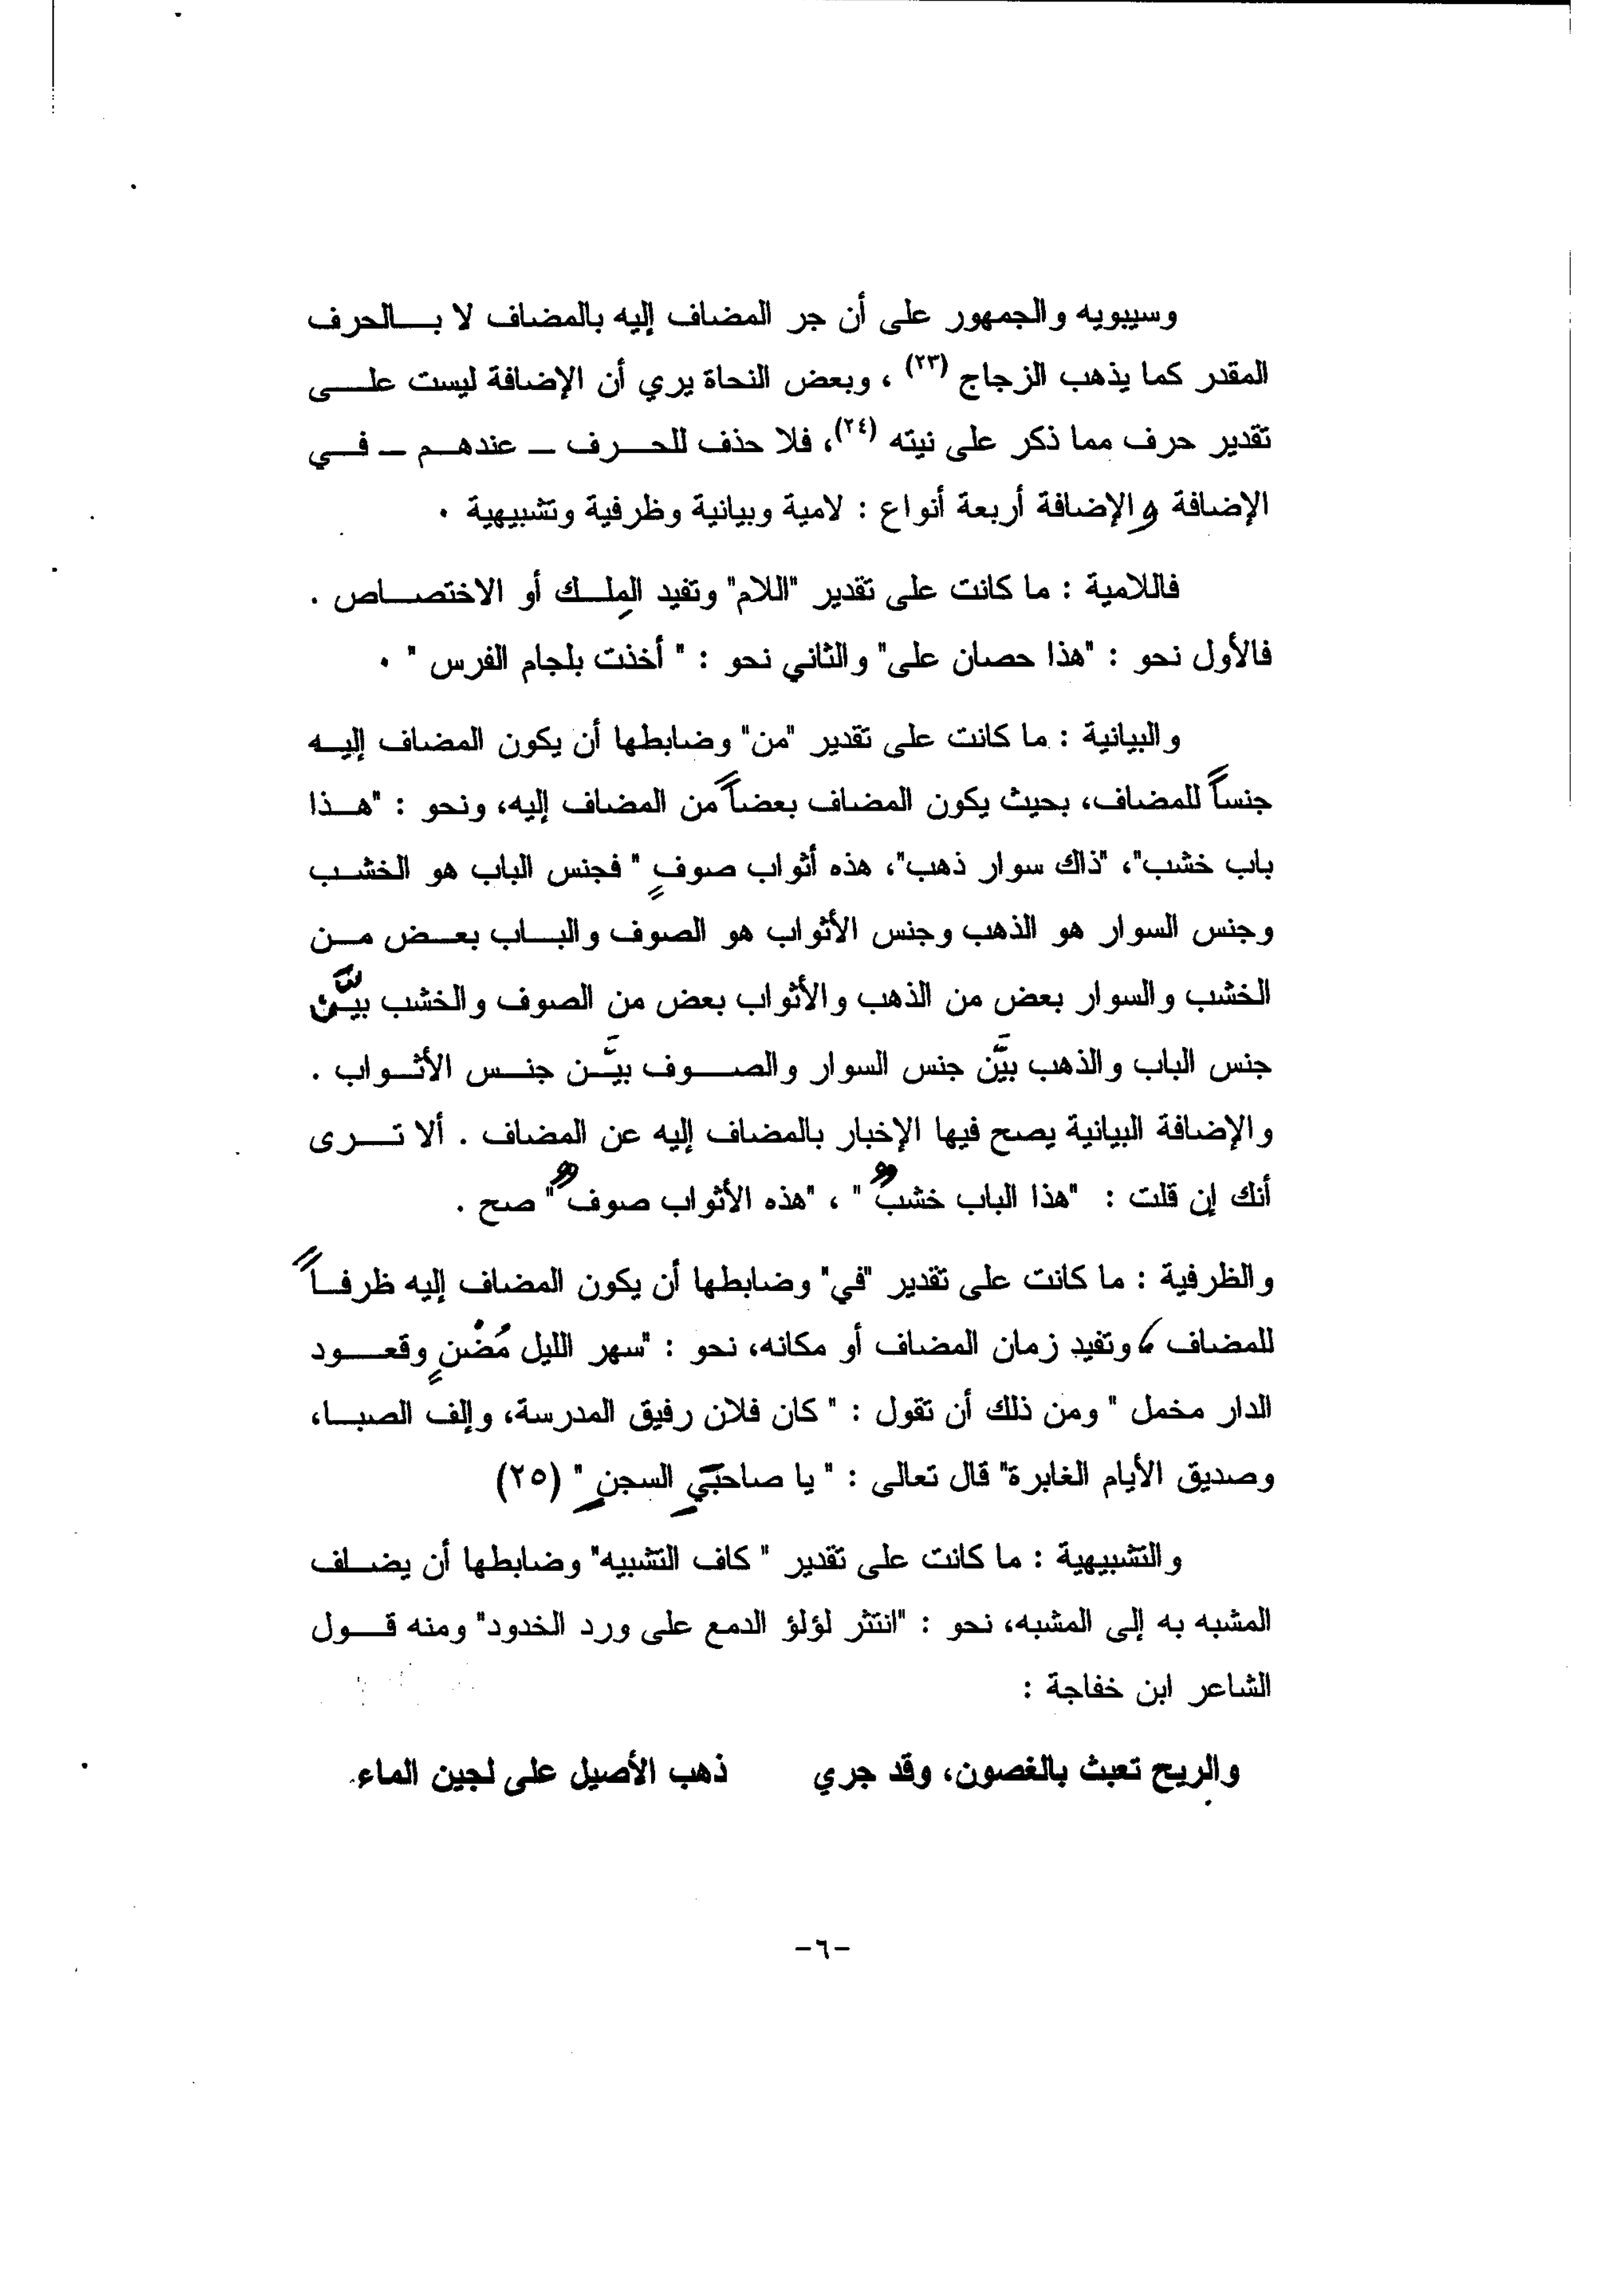 وسيبويه والجمهور على أن جر المضاف إليه بالمضاف لا بالحرف
المقدر كما يذهب الزجاج (٢٣) ، وبعض النحاة يري أن الإضافة ليست على
تقدير حرف مما ذكر على نيته (٢٤)، فلا حذف للحرف – عندهم – في
الإضافة والإضافة أربعة أنواع : لامية وبيانية وظرفية وتشبيهية ٠
فاللامية : ما كانت على تقدير "اللام" وتفيد المِلك أو الاختصاص .
فالأول نحو : "هذا حصان على" والثاني نحو : " أخذت بلجام الفرس " ٠
والبيانية : ما كانت على تقدير "من" وضابطها أن يكون المضاف إليه
جنساً للمضاف، بحيث يكون المضاف بعضاً من المضاف إليه، ونحو : "هذا
باب خشب"، "ذاك سوار ذهب"، هذه أثواب صوفٍ " فجنس الباب هو الخشب
وجنس السوار هو الذهب وجنس الأثواب هو الصوف والباب بعض من
الخشب والسوار بعض من الذهب والأثواب بعض من الصوف والخشب بيَّن
جنس الباب والذهب بيَّن جنس السوار والصوف بيَّن جنس الأثواب .
والإضافة البيانية يصح فيها الإخبار بالمضاف إليه عن المضاف . ألا ترى
أنك إن قلت : "هذا الباب خشبٌ " ، "هذه الأثواب صوفٌ " صح .
والظرفية : ما كانت على تقدير "في" وضابطها أن يكون المضاف إليه ظرفاً
للمضاف ، وتفيد زمان المضاف أو مكانه، نحو : "سهر الليل مُضْنٍ وقعود
الدار مخمل " ومن ذلك أن تقول : " كان فلان رفيق المدرسة، وإلف الصبا،
وصديق الأيام الغابرة" قال تعالى : " يا صاحبَيِ السجنِ " (٢٥)
والتشبيهية : ما كانت على تقدير " كاف التشبيه" وضابطها أن يضلف
المشبه به إلى المشبه، نحو : "انتثر لؤلؤ الدمع على ورد الخدود" ومنه قول
الشاعر ابن خفاجة :
والريح تعبث بالغصون، وقد جري ذهب الأصيل على لجين الماء.
-٦-